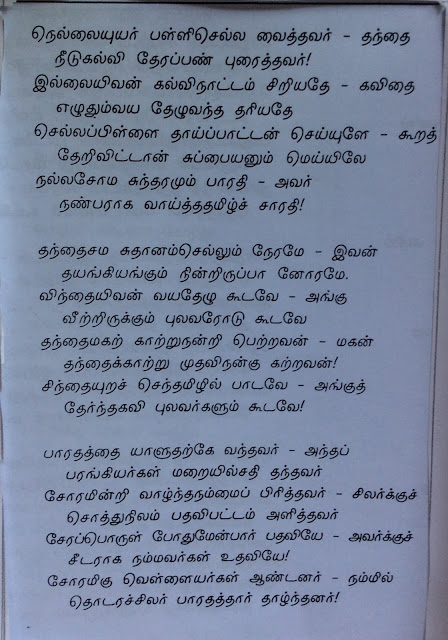 நெல்லையுயர் பள்ளிசெல்ல வைத்தவர் – தந்தை
நீடுகல்வி தேரப்பண் புரைத்தவர்!
இல்லையிவன் கல்விநாட்டம் சிறியதே – கவிதை
எழுதும்வய தேழுவந்த தரியதே
செல்லப்பிள்ளை தாய்ப்பாட்டன் செய்யுளே – கூறத்
தேறிவிட்டான் சுப்பையனும் மெய்யிலே
நல்லசோம சுந்தரமும் பாரதி – அவர்
நண்பராக வாய்த்ததமிழ்ச் சாரதி!
தந்தைசம சுதானம்செல்லும் நேரமே – இவன்
தயங்கியங்கும் நின்றிருப்பா னோரமே.
விந்தையிவன் வயதேழு கூடவே – அங்கு
வீற்றிருக்கும் புலவரோடு கூடவே
தந்தைமகற் காற்றுநன்றி பெற்றவன் – மகன்
தந்தைக்காற்று முதவிநன்கு கற்றவன்!
சிந்தையுறச் செந்தமிழில் பாடவே – அங்குத்
தேர்ந்தகவி புலவர்களும் கூடவே!
பாரதத்தை யாளுதற்கே வந்தவர் – அந்தப்
பரங்கியர்கள் மறையில்சதி தந்தவர்
சோரமின்றி வாழ்ந்தநம்மைப் பிரித்தவர் – சிலர்க்குச்
சொத்துநிலம் பதவிபட்டம் அளித்தவர்
சேரப்பொருள் போதுமேன்பார் பதவியே – அவர்க்குச்
சீடராக நம்மவர்கள் உதவியே!
சோரமிகு வெள்ளையர்கள் ஆண்டனர் – நம்மில்
தொடரச்சிலர் பாரதத்தார் தாழ்ந்தனர்!